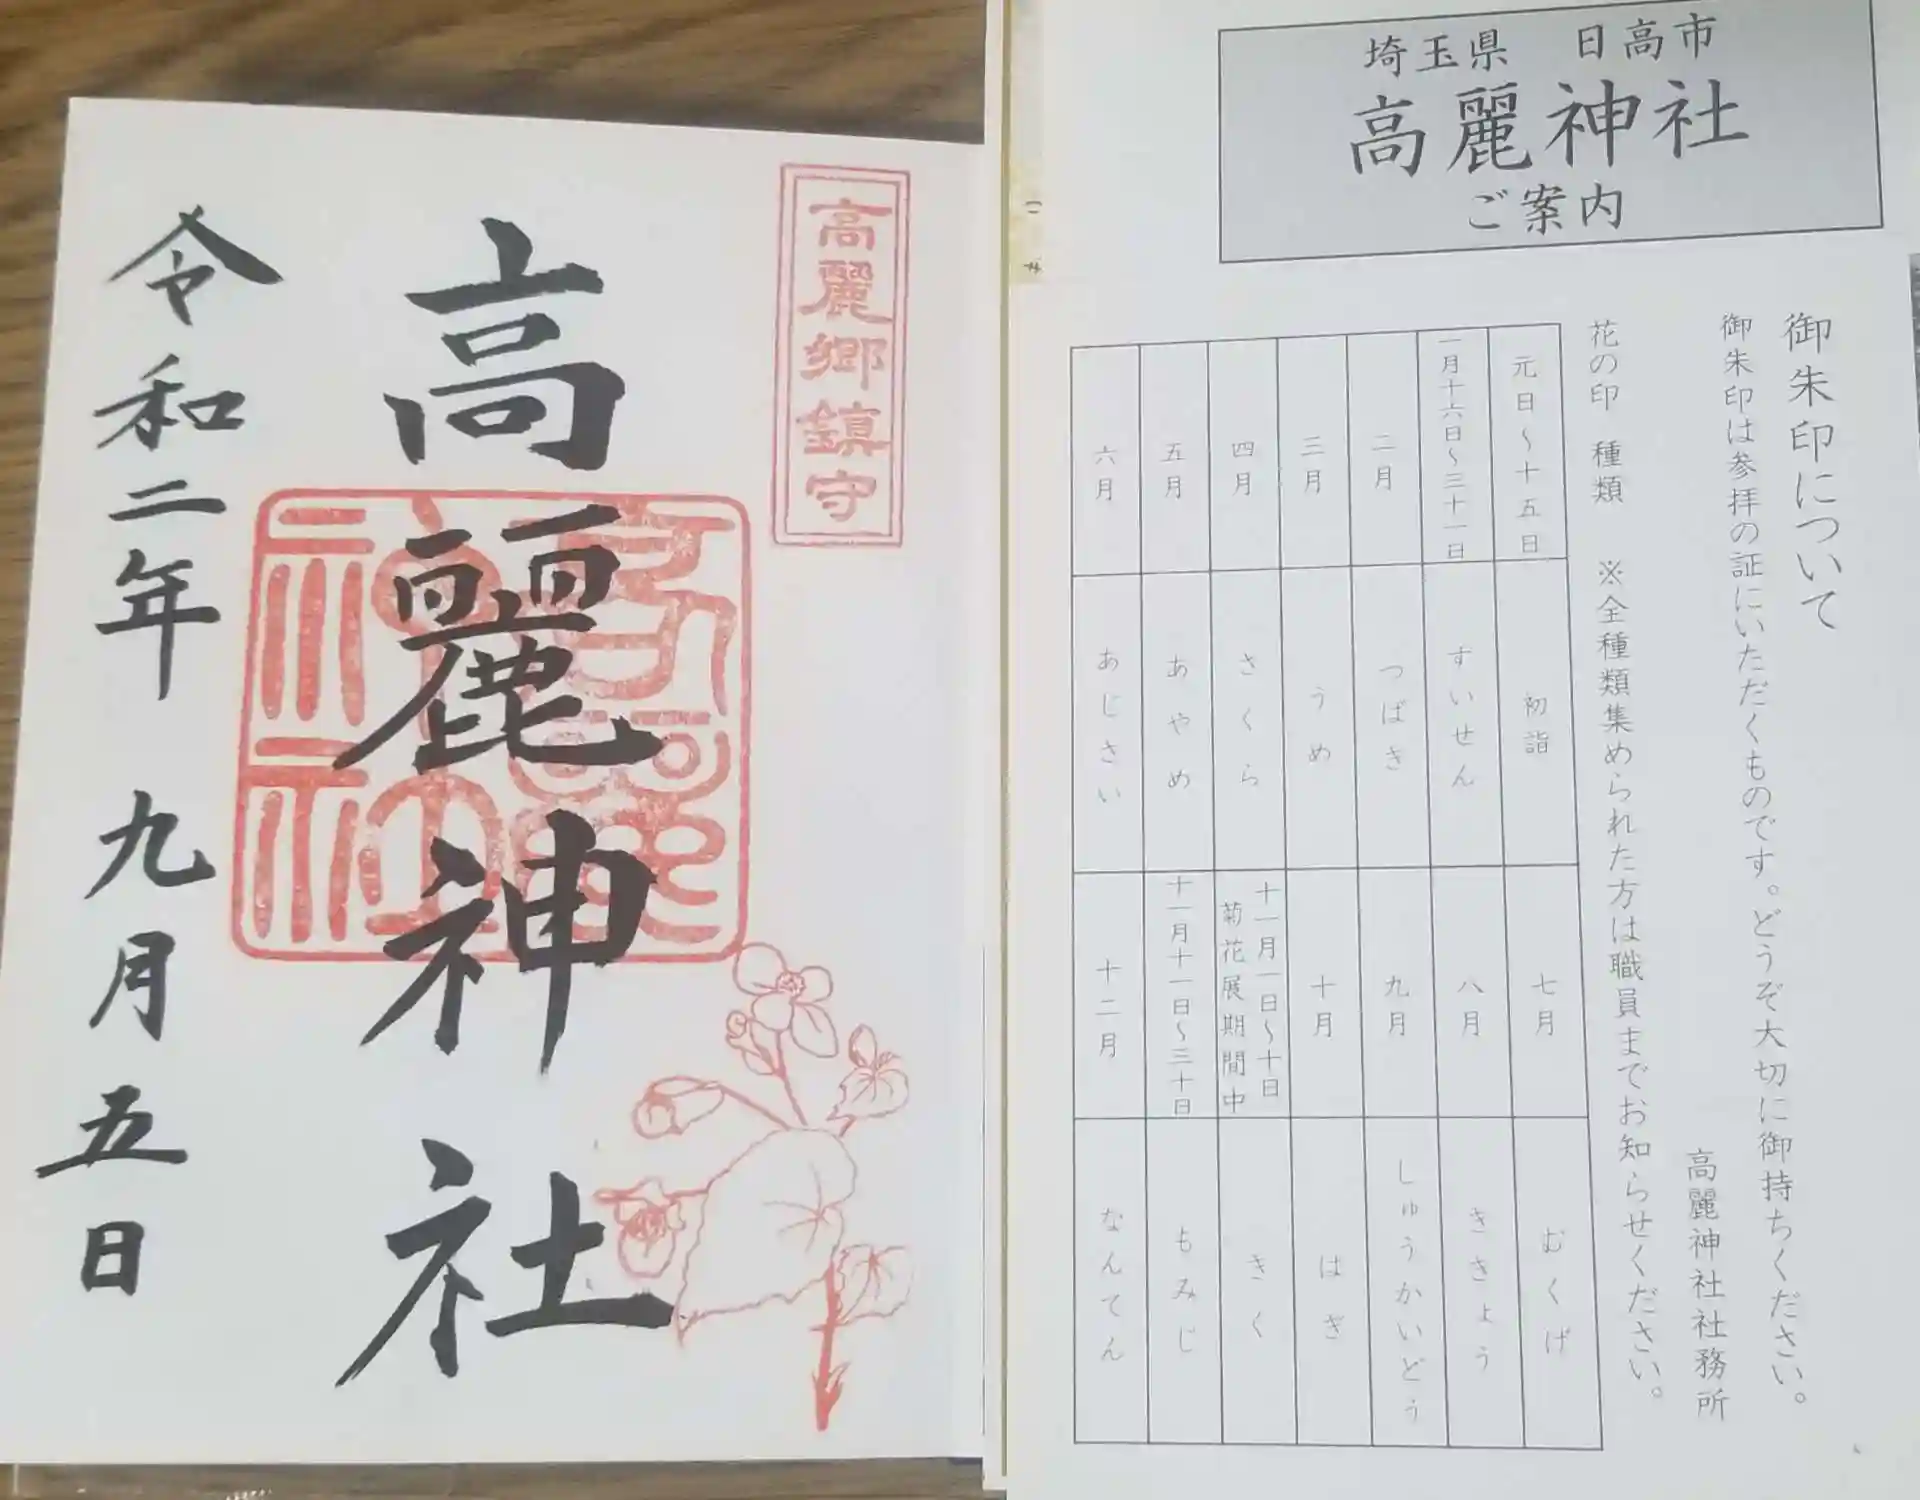 高麗郷鎮守
高麗神社
令和二年 九月五日
高麗神社
埼玉県 日高市
高麗神社
ご案内
御朱印について
御朱印は参拝の証にいただくものです。どうぞ大切に御持ちください。
高麗神社社務所
花の印 種類 ※全種類集められた方は職員までお知らせください。
元日～十五日 初詣
一月十六日～三十一日 すいせん
二月 つばき
三月 うめ
四月 さくら
五月 あやめ
六月 あじさい
七月 むくげ
八月 ききょう
九月 しゅうかいどう
十月 はぎ
十一月一日～十日
菊花展期間中 きく
十一月十一日～三十日 もみじ
十二月 なんてん